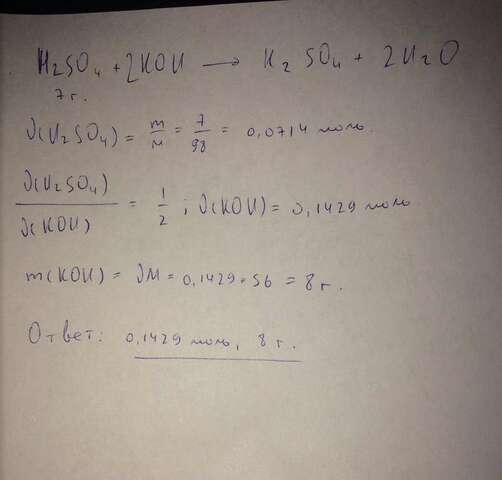 H₂SO₄ + 2KOH → K₂SO₄ + 2H₂O
7 г.
ν(H₂SO₄) = m/M = 7/98 = 0,0714 моль.
ν(H₂SO₄)/ν(KOH) = 1/2 ; ν(KOH) = 0,1429 моль
m(KOH) = νM = 0,1429 · 56 = 8 г.
Ответ: 0,1429 моль, 8 г.